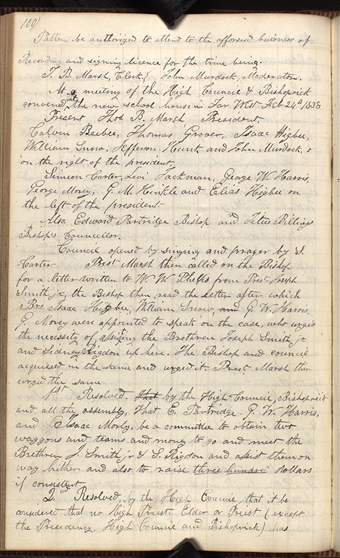 100
Patten be authorized to attend to the afforsaid buisiness of
Recording and signing licence for the time being.
T. B. Marsh, Clerk. John Murdock, Moderator.
At a meeting of the High Council & Bishoprick
convened at the new school house in Far West Feb 24th 1838
Present Thos B. Marsh President
Calvin Beebee, Thomas Grover, Isaac Higbee,
William Snow, Jefferson Hunt and John Murdock,
on the right of the president
Simeon Carter, Levi Jackman, George W. Harris,
George Morey, G. M. Hinkle and Elias Higbee on
the left of the president
Also Edward Partridge Bishop and Titus Billings
Bishop's Councellor.
Council opened by singing and prayer by S.
Carter Prest Marsh then called on the Bishop
for a letter written to W. W. Phelps from Prest Joseph
Smith jr, the Bishop then read the letter after which
Brs Isaac Higbee, William Snow, and G. W. Harris
G. Morey were appointed to speak on the case, who urged
the necessity of assisting the Brethren Joseph Smith, jr
and Sidney Rigdon up here. The Bishop and council
acquiesed in the same and urged it. Prest Marsh then
urged the same
1st Resolved, that by the High Council, Bishoprick
and all the assembly, That E. Partridge, G. W. Harris,
and Isaac Morly, be a committee to obtain two
waggons and teams and mony to go and meet the
Brethren J. Smith, jr & S. Rigdon and assist them on
way hither and also to raise three hundred dollars
if consistent
2nd Resolved, by the High Council, that it be
considered that no High Priest, Elder or Priest (except
the Presidency High Council and Bishoprick) has